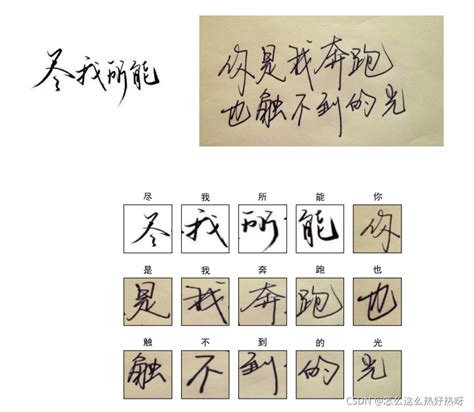 尽我所能
你是我奔跑
也触不到的光
尽 我 所 能 你
尽 我 所 能 你
是 我 奔 跑 也
是 我 奔 跑 也
触 不 到 的 光
触 不 到 的 光
CSDN @怎么这么热好热呀